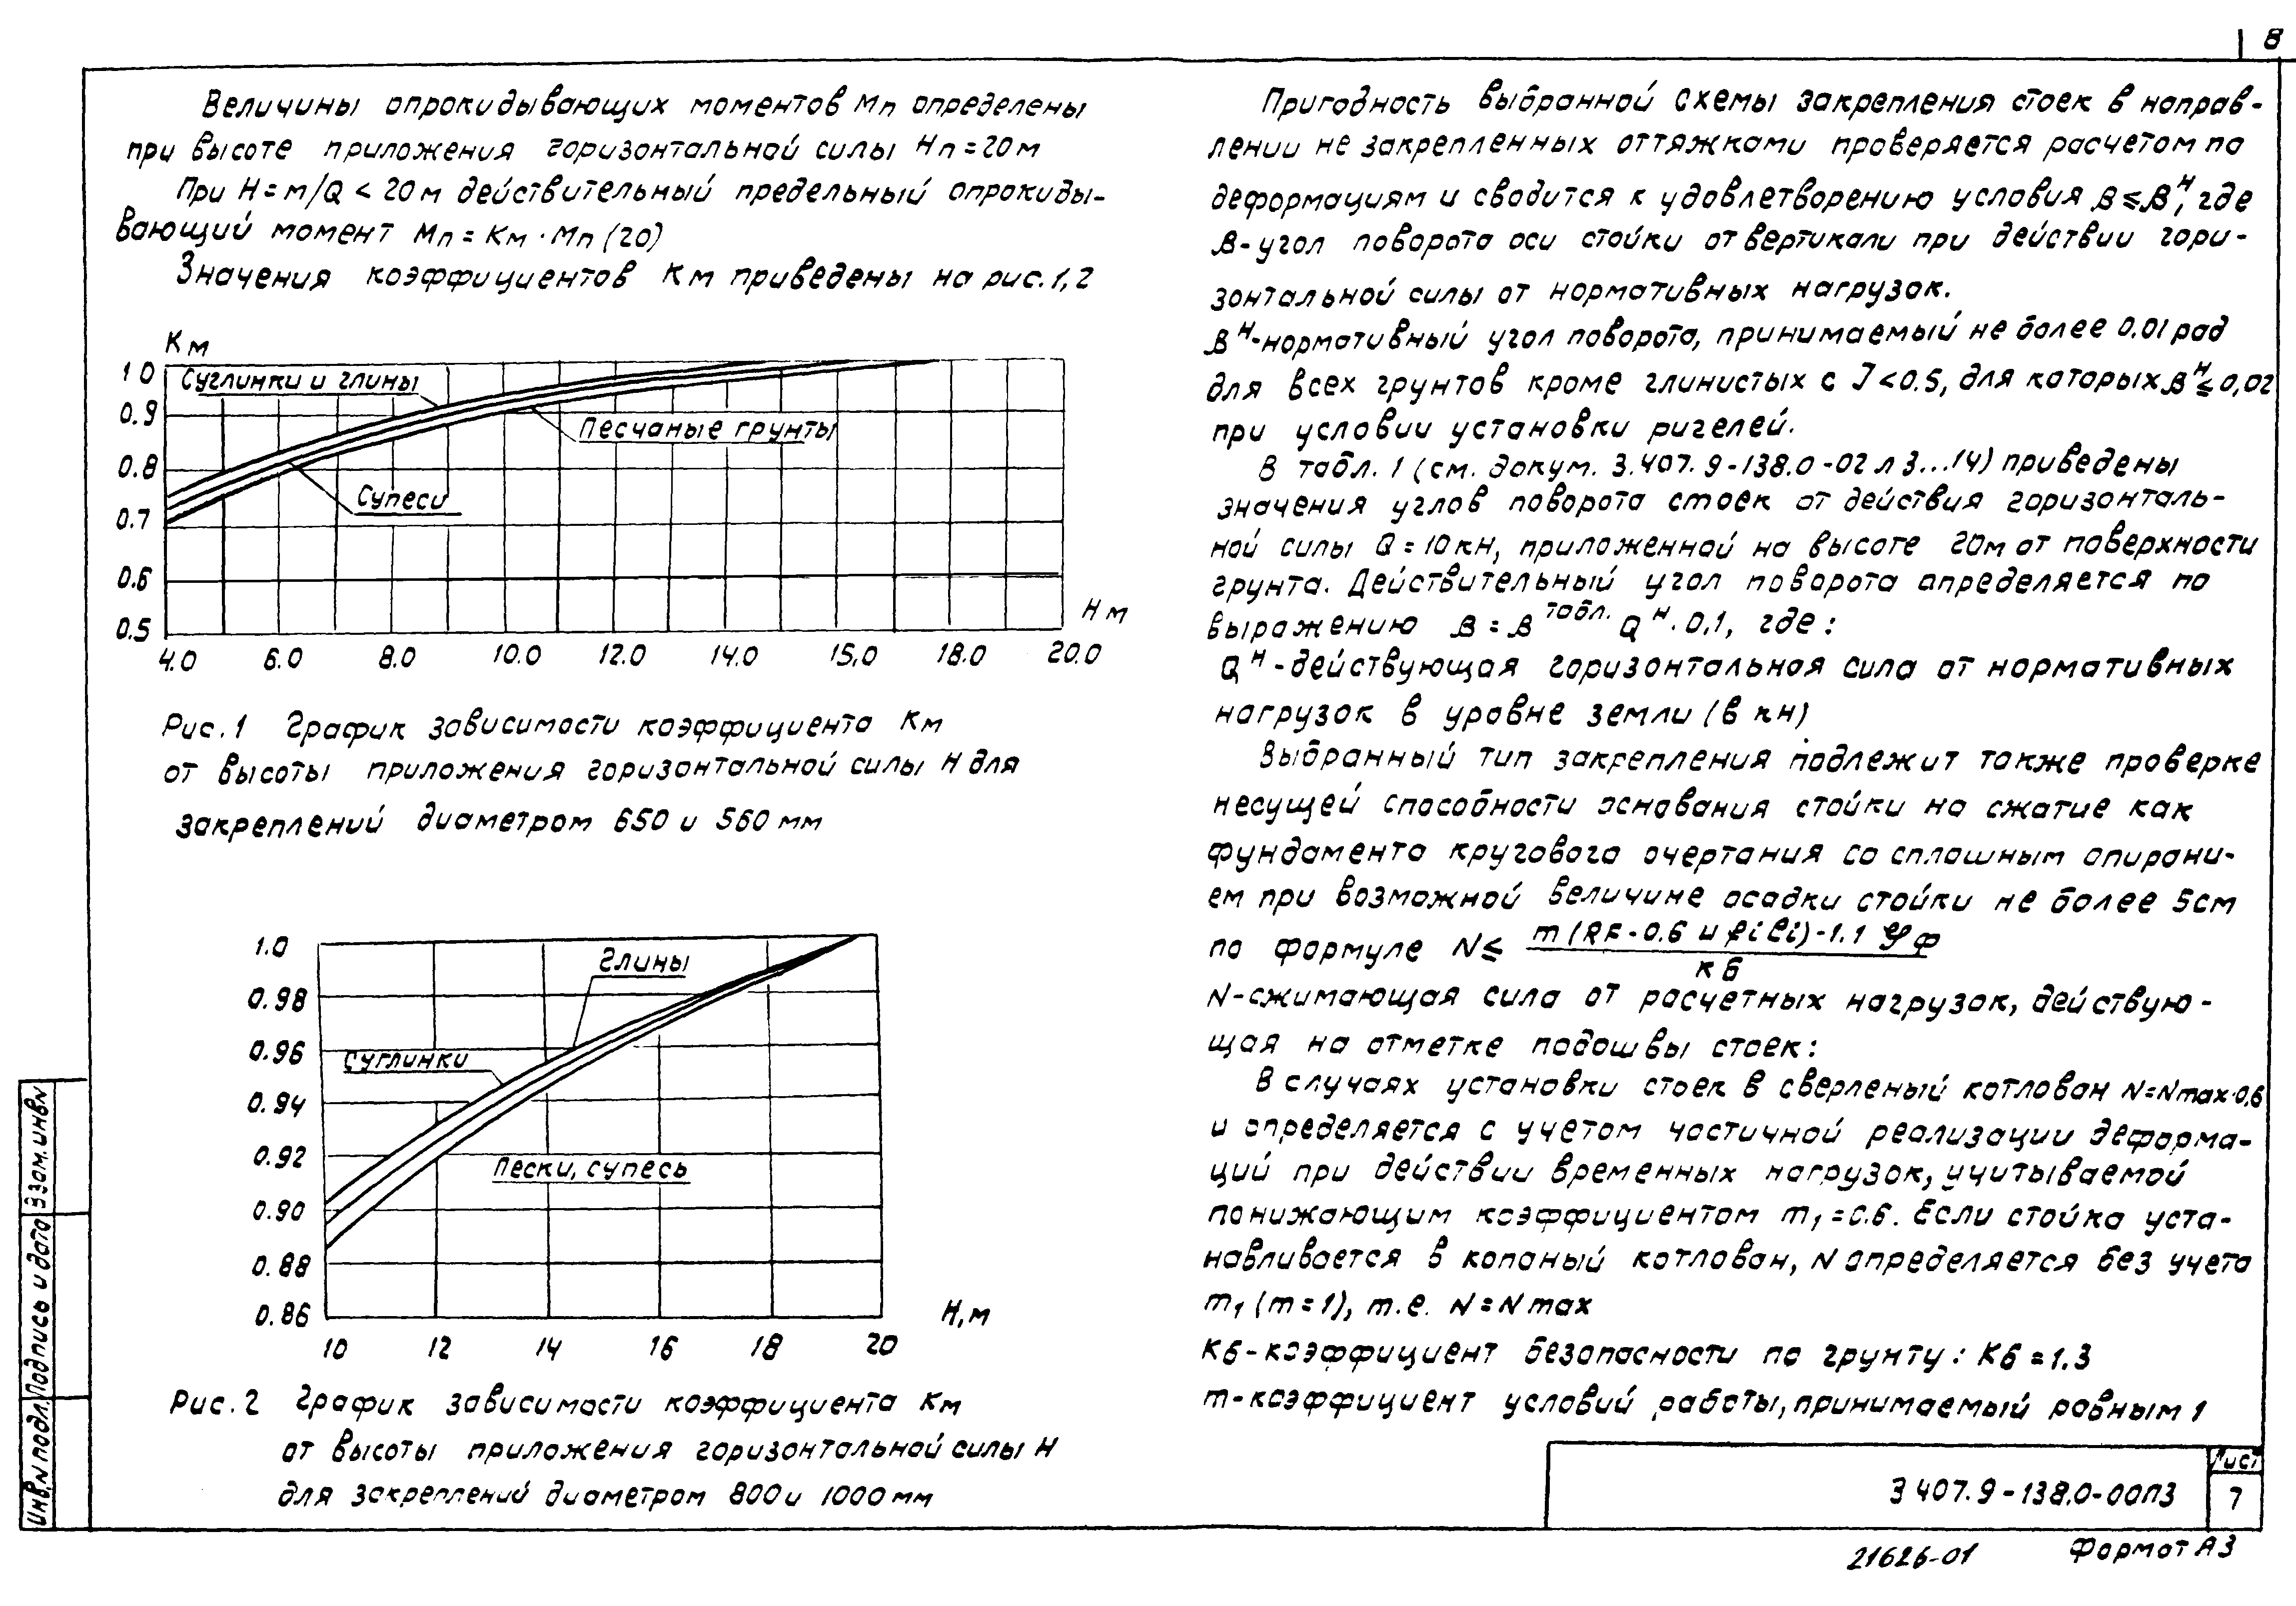 8
Величины опрокидывающих моментов Мп определены
при высоте приложения горизонтальной силы Нп = 20 м
При Н = м/Q < 20 м действительный предельный опрокиды-
вающий момент Мп = Км · Мп (20)
Значения коэффициентов Км приведены на рис. 1, 2
Км
1 0
0.9
0.8
0.7
0.6
0.5
Суглинки и глины
Песчаные грунты
Супеси
Н м
4.0 6.0 8.0 10.0 12.0 14.0 15.0 18.0 20.0
Рис. 1 График зависимости коэффициента Км
от высоты приложения горизонтальной силы Н для
закреплений диаметром 650 и 560 мм
1.0
0.98
0.96
0.94
0.92
0.90
0.88
0.86
Глины
Суглинки
Пески, супесь
Н, м
10 12 14 16 18 20
Рис. 2 График зависимости коэффициента Км
от высоты приложения горизонтальной силы Н
для закреплений диаметром 800 и 1000 мм
Пригодность выбранной схемы закрепления стоек в направ-
лении не закрепленных оттяжками проверяется расчетом по
деформациям и сводится к удовлетворению условия β ≤ βᴴ, где
β - угол поворота оси стойки от вертикали при действии гори-
зонтальной силы от нормативных нагрузок.
βᴴ - нормативный угол поворота, принимаемый не более 0.01 рад
для всех грунтов кроме глинистых с J < 0.5, для которых βᴴ ≤ 0,02
при условии установки ригелей.
В табл. 1 (см. докум. 3.407.9-138.0-02 л 3...14) приведены
значения углов поворота стоек от действия горизонталь-
ной силы Q = 10 кн, приложенной на высоте 20м от поверхности
грунта. Действительный угол поворота определяется по
выражению β = β табл. Qᴴ · 0,1, где:
Qᴴ - действующая горизонтальная сила от нормативных
нагрузок в уровне земли (в кн)
Выбранный тип закрепления подлежит также проверке
несущей способности основания стойки на сжатие как
фундамента кругового очертания со сплошным опирани-
ем при возможной величине осадки стойки не более 5см
по формуле N ≤ m (RF - 0.6 и fi li) - 1.1 φ ф / кб
N - сжимающая сила от расчетных нагрузок, действую-
щая на отметке подошвы стоек:
В случаях установки стоек в сверленый котлован N = Nmax · 0,6
и определяется с учетом частичной реализации деформа-
ций при действии временных нагрузок, учитываемой
понижающим коэффициентом m₁ = 0.6. Если стойка уста-
навливается в копаный котлован, N определяется без учета
m₁ (m = 1), т.е. N = N max
Кб - коэффициент безопасности по грунту: Кб = 1.3
m - коэффициент условий работы, принимаемый равным 1
Взам. инв N
Подпись и дата
Инв. N подл.
3 407.9-138.0-00ПЗ
Лист
7
21626-01
Формат А3